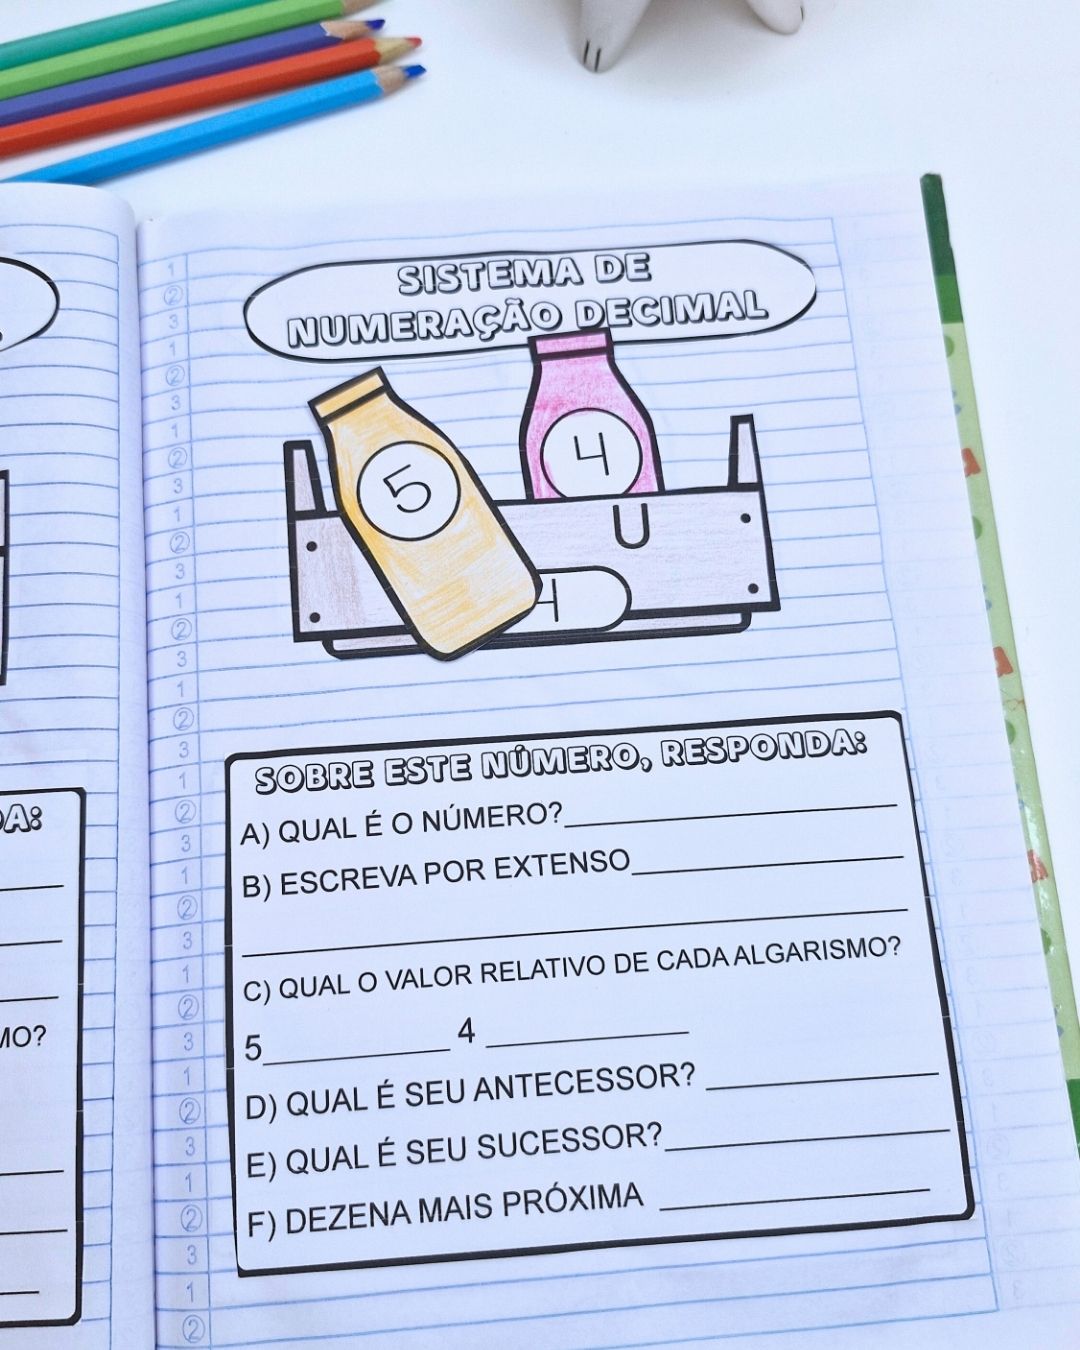 SISTEMA DE
NUMERAÇÃO DECIMAL
5
4
U
4
SOBRE ESTE NÚMERO, RESPONDA:
A) QUAL É O NÚMERO?
B) ESCREVA POR EXTENSO
C) QUAL O VALOR RELATIVO DE CADA ALGARISMO?
5 4
D) QUAL É SEU ANTECESSOR?
E) QUAL É SEU SUCESSOR?
F) DEZENA MAIS PRÓXIMA